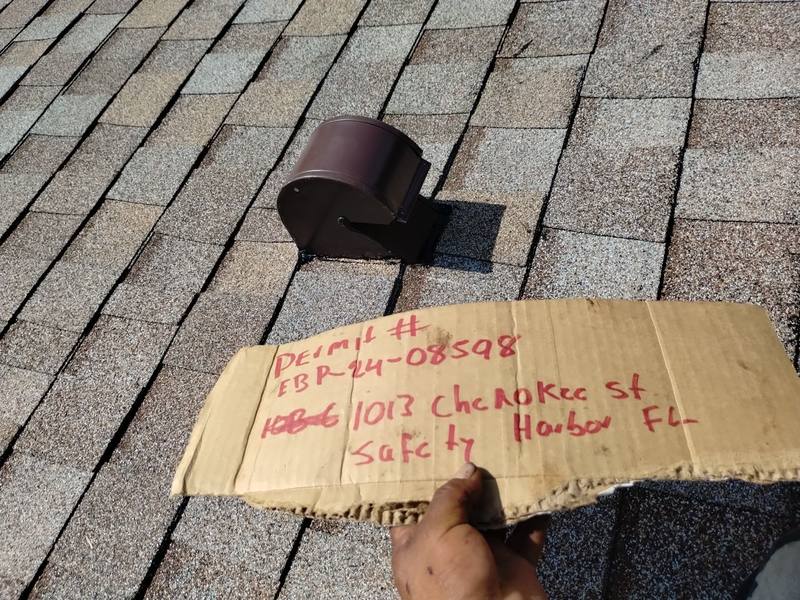 Permit #
EBR-24-08598
1013 Cherokee St
Safety Harbor FL